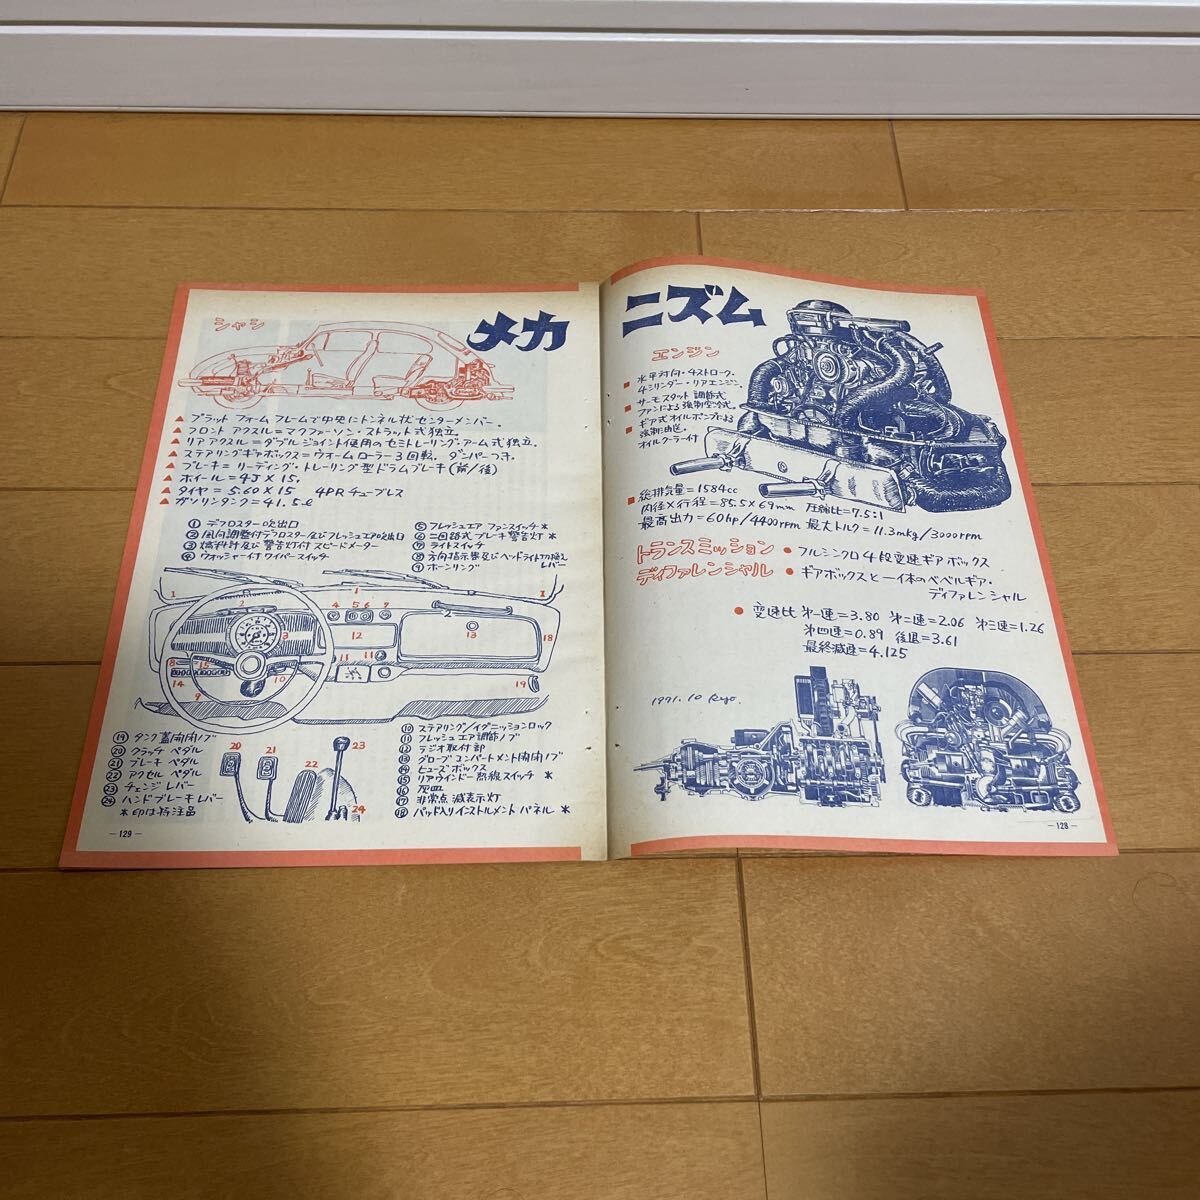 メカニズム
シャシ
▲ プラットフォームフレームで中央にトンネル状センターメンバー.
▲ フロントアクスル=マクファーソン・ストラット式独立.
▲ リアアクスル=ダブルジョイント使用のセミトレーリング・アーム式独立.
▲ ステアリングギアボックス=ウォームローラー3回転. ダンパーつき.
▲ ブレーキ=リーディング・トレーリング型ドラムブレーキ(前/後)
▲ ホイール=4J×15.
▲ タイヤ=5.60×15 4PRチューブレス
▲ ガソリンタンク=41.5ℓ
① デフロスター吹出口
② 風向調整付デフロスター及びフレッシュエア吹出口
③ 燃料計及び警告灯付スピードメーター
④ ウォッシャー付ワイパースイッチ
⑤ フレッシュエアファンスイッチ*
⑥ 二回路式ブレーキ警告灯*
⑦ ライトスイッチ
⑧ 方向指示器及びヘッドライト切換えレバー
⑨ ホーンリング
1 1 1
2 2
3
4 5 6 7
12 13 18
8 15 11 11
14 10 16
9 19
⑩ ステアリング/イグニッションロック
⑪ フレッシュエア調節ノブ
⑫ ラジオ取付部
⑬ グローブコンパートメント開閉ノブ
⑭ ヒューズボックス
⑮ リアウインドー熱線スイッチ*
⑯ 灰皿
⑰ 非常点滅表示灯
⑱ パッド入りインストルメントパネル*
⑲ タンク蓋開閉ノブ
⑳ クラッチペダル
㉑ ブレーキペダル
㉒ アクセルペダル
㉓ チェンジレバー
㉔ ハンドブレーキレバー
*印は特注品
20 21 22 23 24
—129—
エンジン
■ 水平対向・4ストローク・
4シリンダー・リアエンジン.
■ サーモスタット調節式
ファンによる強制空冷式.
■ ギア式オイルポンプによる
強制圧送.
オイルクーラー付
■ 総排気量=1584cc
内径×行程=85.5×69mm 圧縮比=7.5:1
最高出力=60hp/4400rpm 最大トルク=11.3mkg/3000rpm
トランスミッション
● フルシンクロ4段変速ギアボックス
ディファレンシャル
● ギアボックスと一体のベベルギア・
ディファレンシャル
● 変速比 第一速=3.80 第二速=2.06 第三速=1.26
第四速=0.89 後退=3.61
最終減速=4.125
1971.10 Ryo
—128—